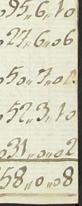 95,,6,,10
27,,6,,06
50,,7,,0
52,,3,,10
31,,0,,02
58,,0,,08